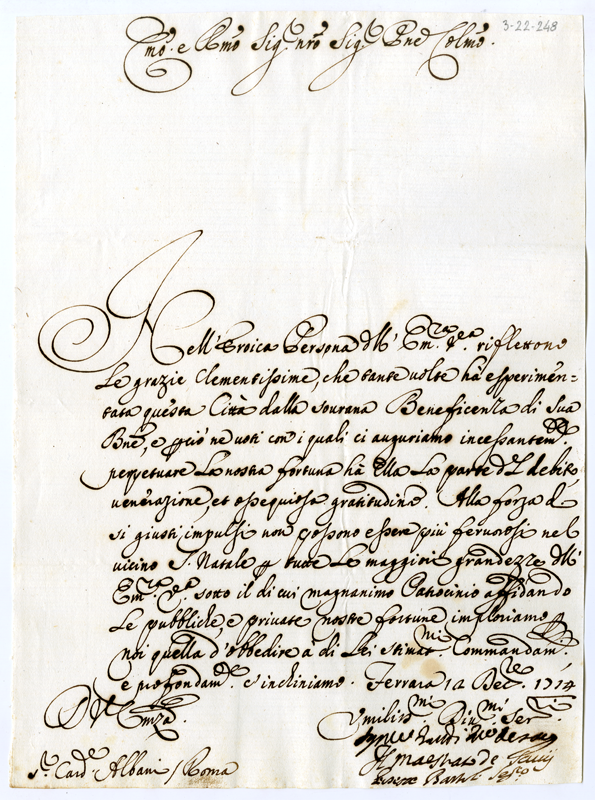 3-22-248
Emo. e Rmo Sig. nro Sig. Pne Colmo.
Nell'Eroica Persona dell' Em.za V.ra riflettono
le grazie Clementissime, che tante volte hà esperimen=
tata questa Città dalla sourana Beneficenza di Sua
Bne, e però ne voti con i quali ci auguriamo incessantem.te
perpetuare la nostra fortuna hà Ella la parte del debito,
venerazione, et ossequiosa gratitudine. Alla forza di
si giusti impulsi non possono essere più feruorosi nel
vicino S. Natale p tutte le maggiori grandezze dell'
Em.za V.ra sotto il di cui magnanimo Patrocinio affidando
le pubbliche, e private nostre fortune imploriamo p
noi quella d'obbedire à di Lei stimat.mi Commandam.ti,
e profondam.te c'inchiniamo. Ferrara 12 Dec.re 1714
D V Emza.
Umiliss.mi Diu.mi Ser.ri
Il Maestrato de Sauij
S.r Card.le Albani / Roma